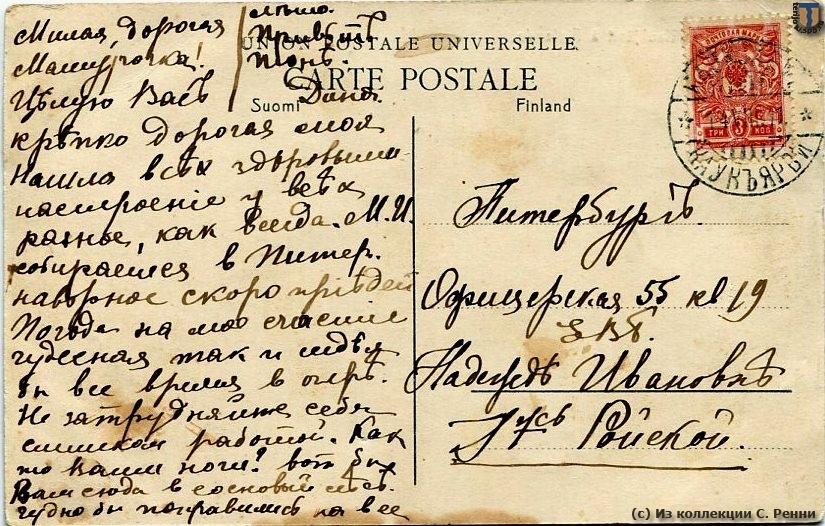 Милая, дорогая
Мамурочка!
Цѣлую Васъ
крѣпко дорогая моя
Нашла всѣх здоровыми
настроеніе у всѣх
разное, как всегда. М. И.
собирается в Питер.
наверное скоро пріѣдет
Погода на мое счастіе
чудесная так и
бы все время в
Не затрудняйте себя
слишком работой. Как
то Ваши ноги? вот бы
Вам сюда в сосновый лѣсъ.
чудно бы поправились на все
лѣто.
Привѣтъ
Дана.
UNION POSTALE UNIVERSELLE
CARTE POSTALE
Suomi
Finland
ТРИ 3 КОП
РАУКЪЯРВИ
Питербургъ
Офицерская 55 кв 19
Надеждѣ Ивановнѣ
Ройской.
(c) Из коллекции С. Ренни